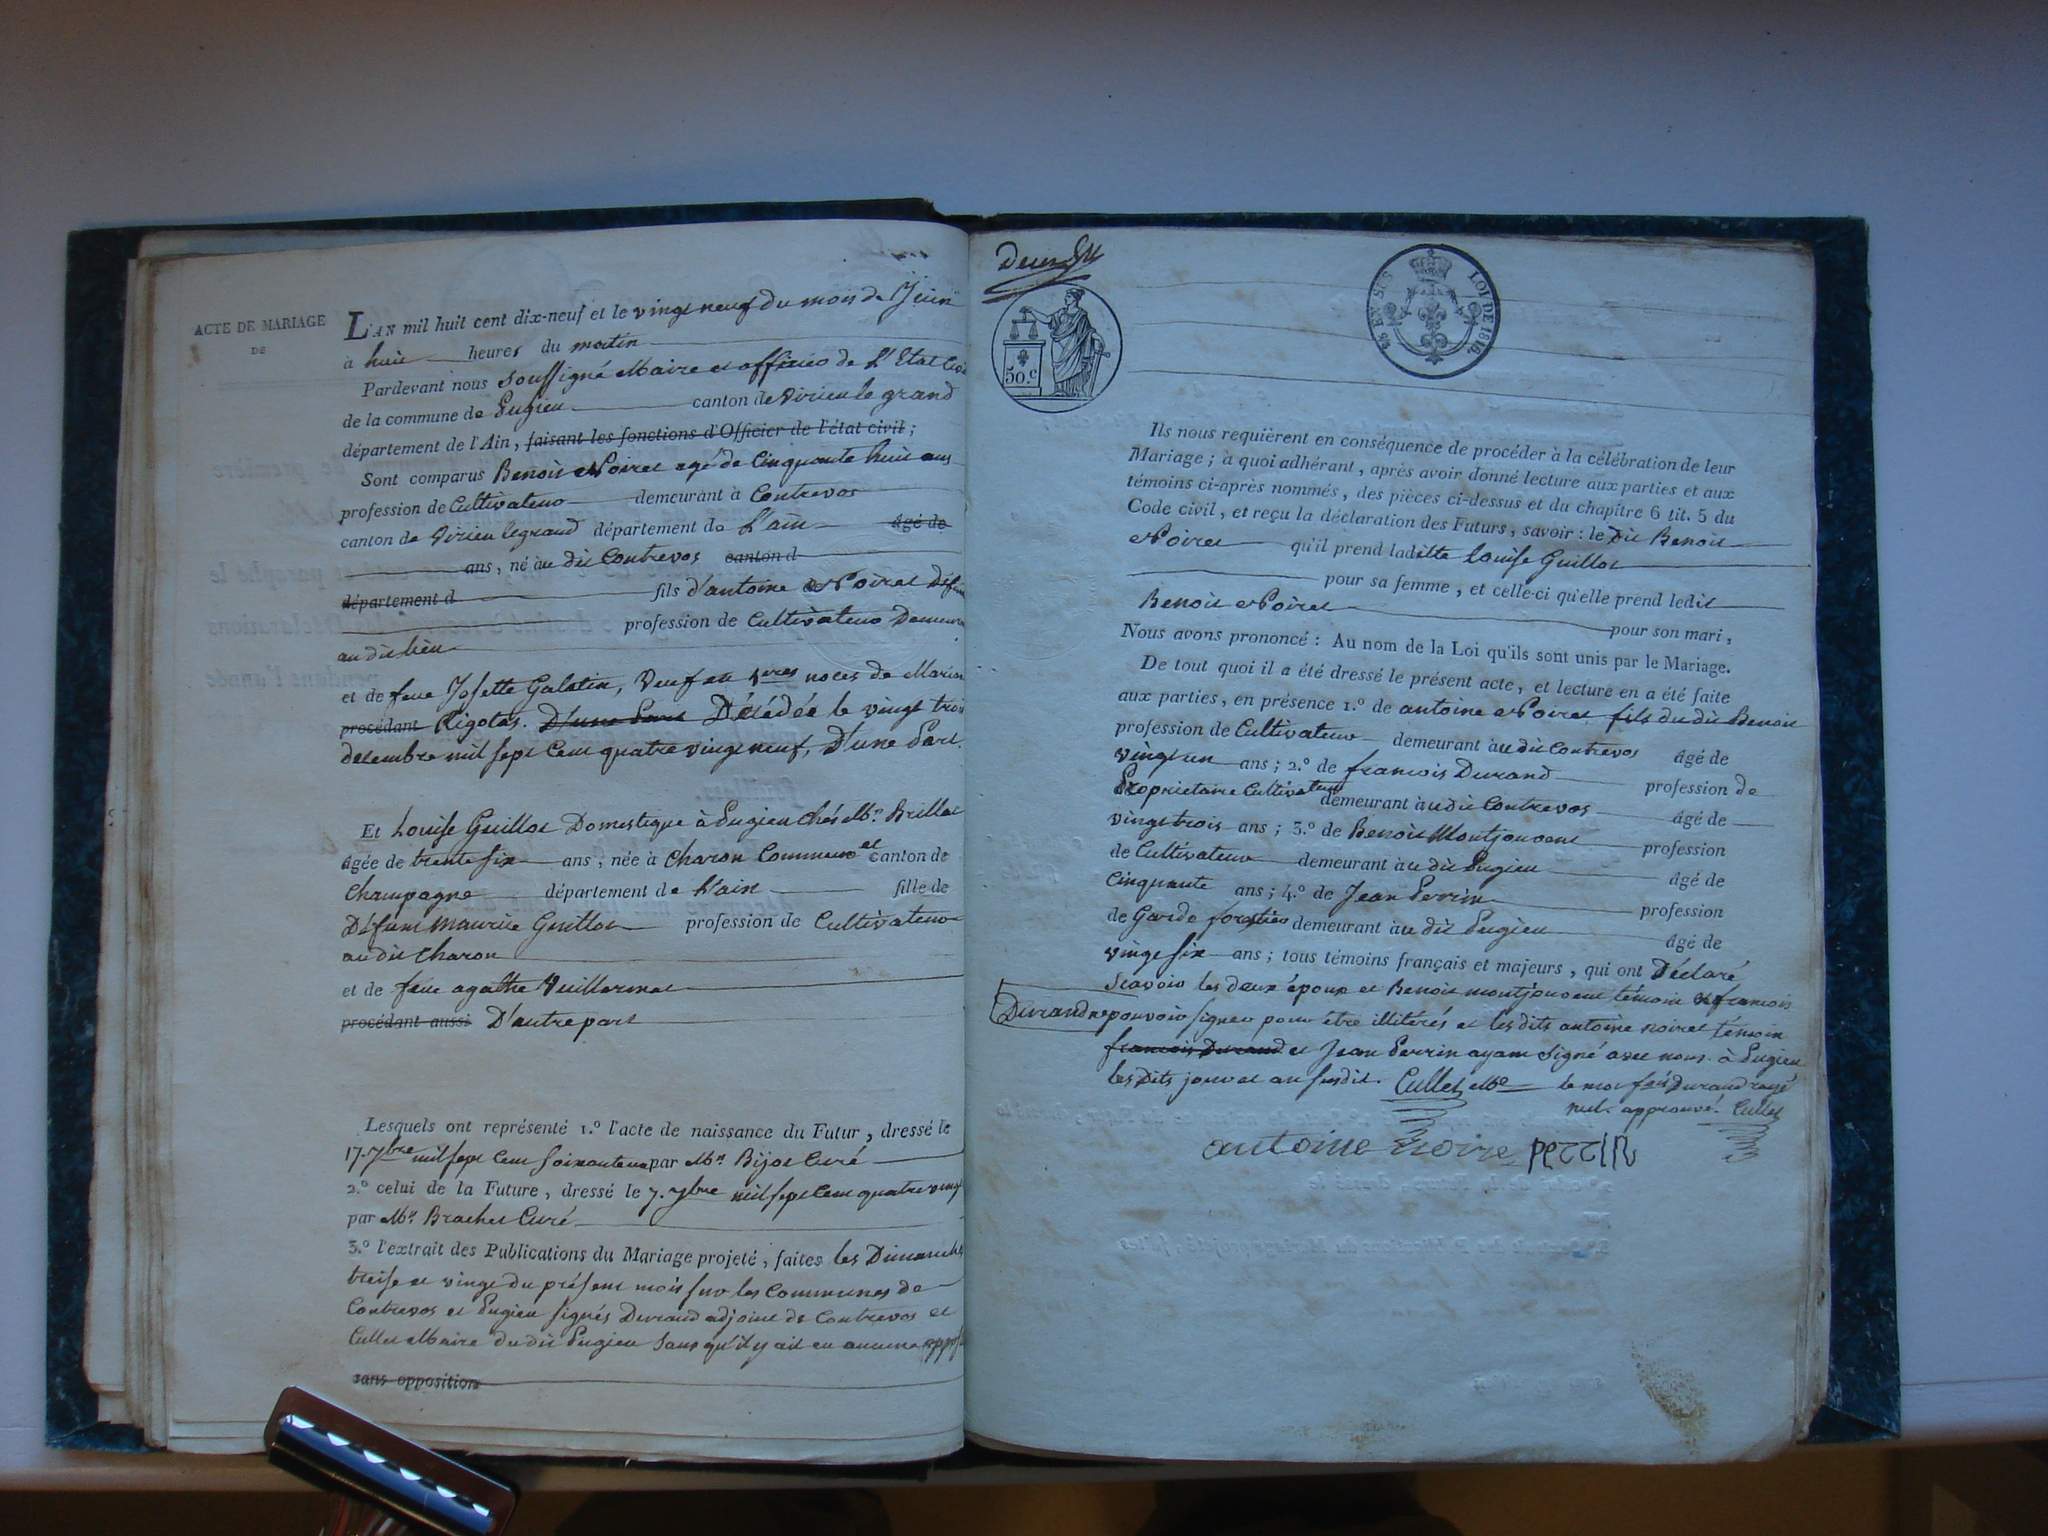 ACTE DE MARIAGE
DE
L'AN mil huit cent dix-neuf et le vingt neuf du mois de Juin
à huit heures du matin
Pardevant nous soussigné Maire et officier de L'Etat Civil
de la commune de Pugieu canton de Virieu le grand
département de l'Ain, faisant les fonctions d'Officier de l'état civil ;
Sont comparus Benoit Noiret agé de Cinquante huit ans
profession de Cultivateur demeurant à Contrevos
canton de Virieu legrand département de L'ain âgé de
ans, né au dit Contrevos canton d
département d fils d'antoine Noiret Défunt
profession de Cultivateur Demeurant
au dit lieu
et de feue Josette Galatin, Veuf en 1res noces de Marion
procédant Rigolas. D'une Part Décédée le vingt trois
decembre mil sept cent quatre vingt neuf, D'une Part.
Et Louise Guillot Domestique à Pugieu chés Mr. Brillat
âgée de trente six ans, née à Charon Commune et canton de
Champagne département de L'ain fille de
Défunt Maurice Guillot profession de Cultivateur
au dit Charon
et de feue agathe Vuillermet
procédant aussi D'autre part
Lesquels ont représenté 1.º l'acte de naissance du Futur, dressé le
17. 7bre mil sept cent soixante un par Mr. Bijot Curé
2.º celui de la Future, dressé le 7. 7bre mil sept cent quatre vingt
par Mr. Brachet Curé
3.º l'extrait des Publications du Mariage projeté, faites les Dimanches
treise et vingt du présent mois sur les Communes de
Contrevos et Pugieu signés Durand adjoint de Contrevos et
Cullet Maire du dit Pugieu sans qu'il y ait eu aucune
sans opposition
50.c
LOI DE 1816.
Ils nous requièrent en conséquence de procéder à la célébration de leur
Mariage ; à quoi adhérant, après avoir donné lecture aux parties et aux
témoins ci-après nommés, des pièces ci-dessus et du chapitre 6 tit. 5 du
Code civil, et reçu la déclaration des Futurs, savoir : le Dit Benoit
Noiret qu'il prend ladite Louise Guillot
pour sa femme, et celle-ci qu'elle prend ledit
Benoit Noiret
pour son mari,
Nous avons prononcé : Au nom de la Loi qu'ils sont unis par le Mariage.
De tout quoi il a été dressé le présent acte, et lecture en a été faite
aux parties, en présence 1.º de antoine Noiret fils du dit Benoit
profession de Cultivateur demeurant au dit Contrevos âgé de
vingt un ans ; 2.º de francois Durand profession de
Proprietaire Cultivateur demeurant au dit Contrevos âgé de
vingt trois ans ; 3.º de Benoit Montjouvent profession
de Cultivateur demeurant au dit Pugieu âgé de
Cinquante ans ; 4.º de Jean Perrin profession
de Garde forestier demeurant au dit Pugieu âgé de
vingt six ans ; tous témoins français et majeurs, qui ont Déclaré
scavoir les deux époux et Benoit montjouvent témoin et francois
Durand ne pouvoir signer pour être illitérés et les dits antoine noiret témoin
francois Durand et Jean Perrin ayant signé avec nous à Pugieu
les Dits jour et an susdit. Cullet Me le mot fois Durand rayé
nul approuvé. Cullet
antoine noire perrin